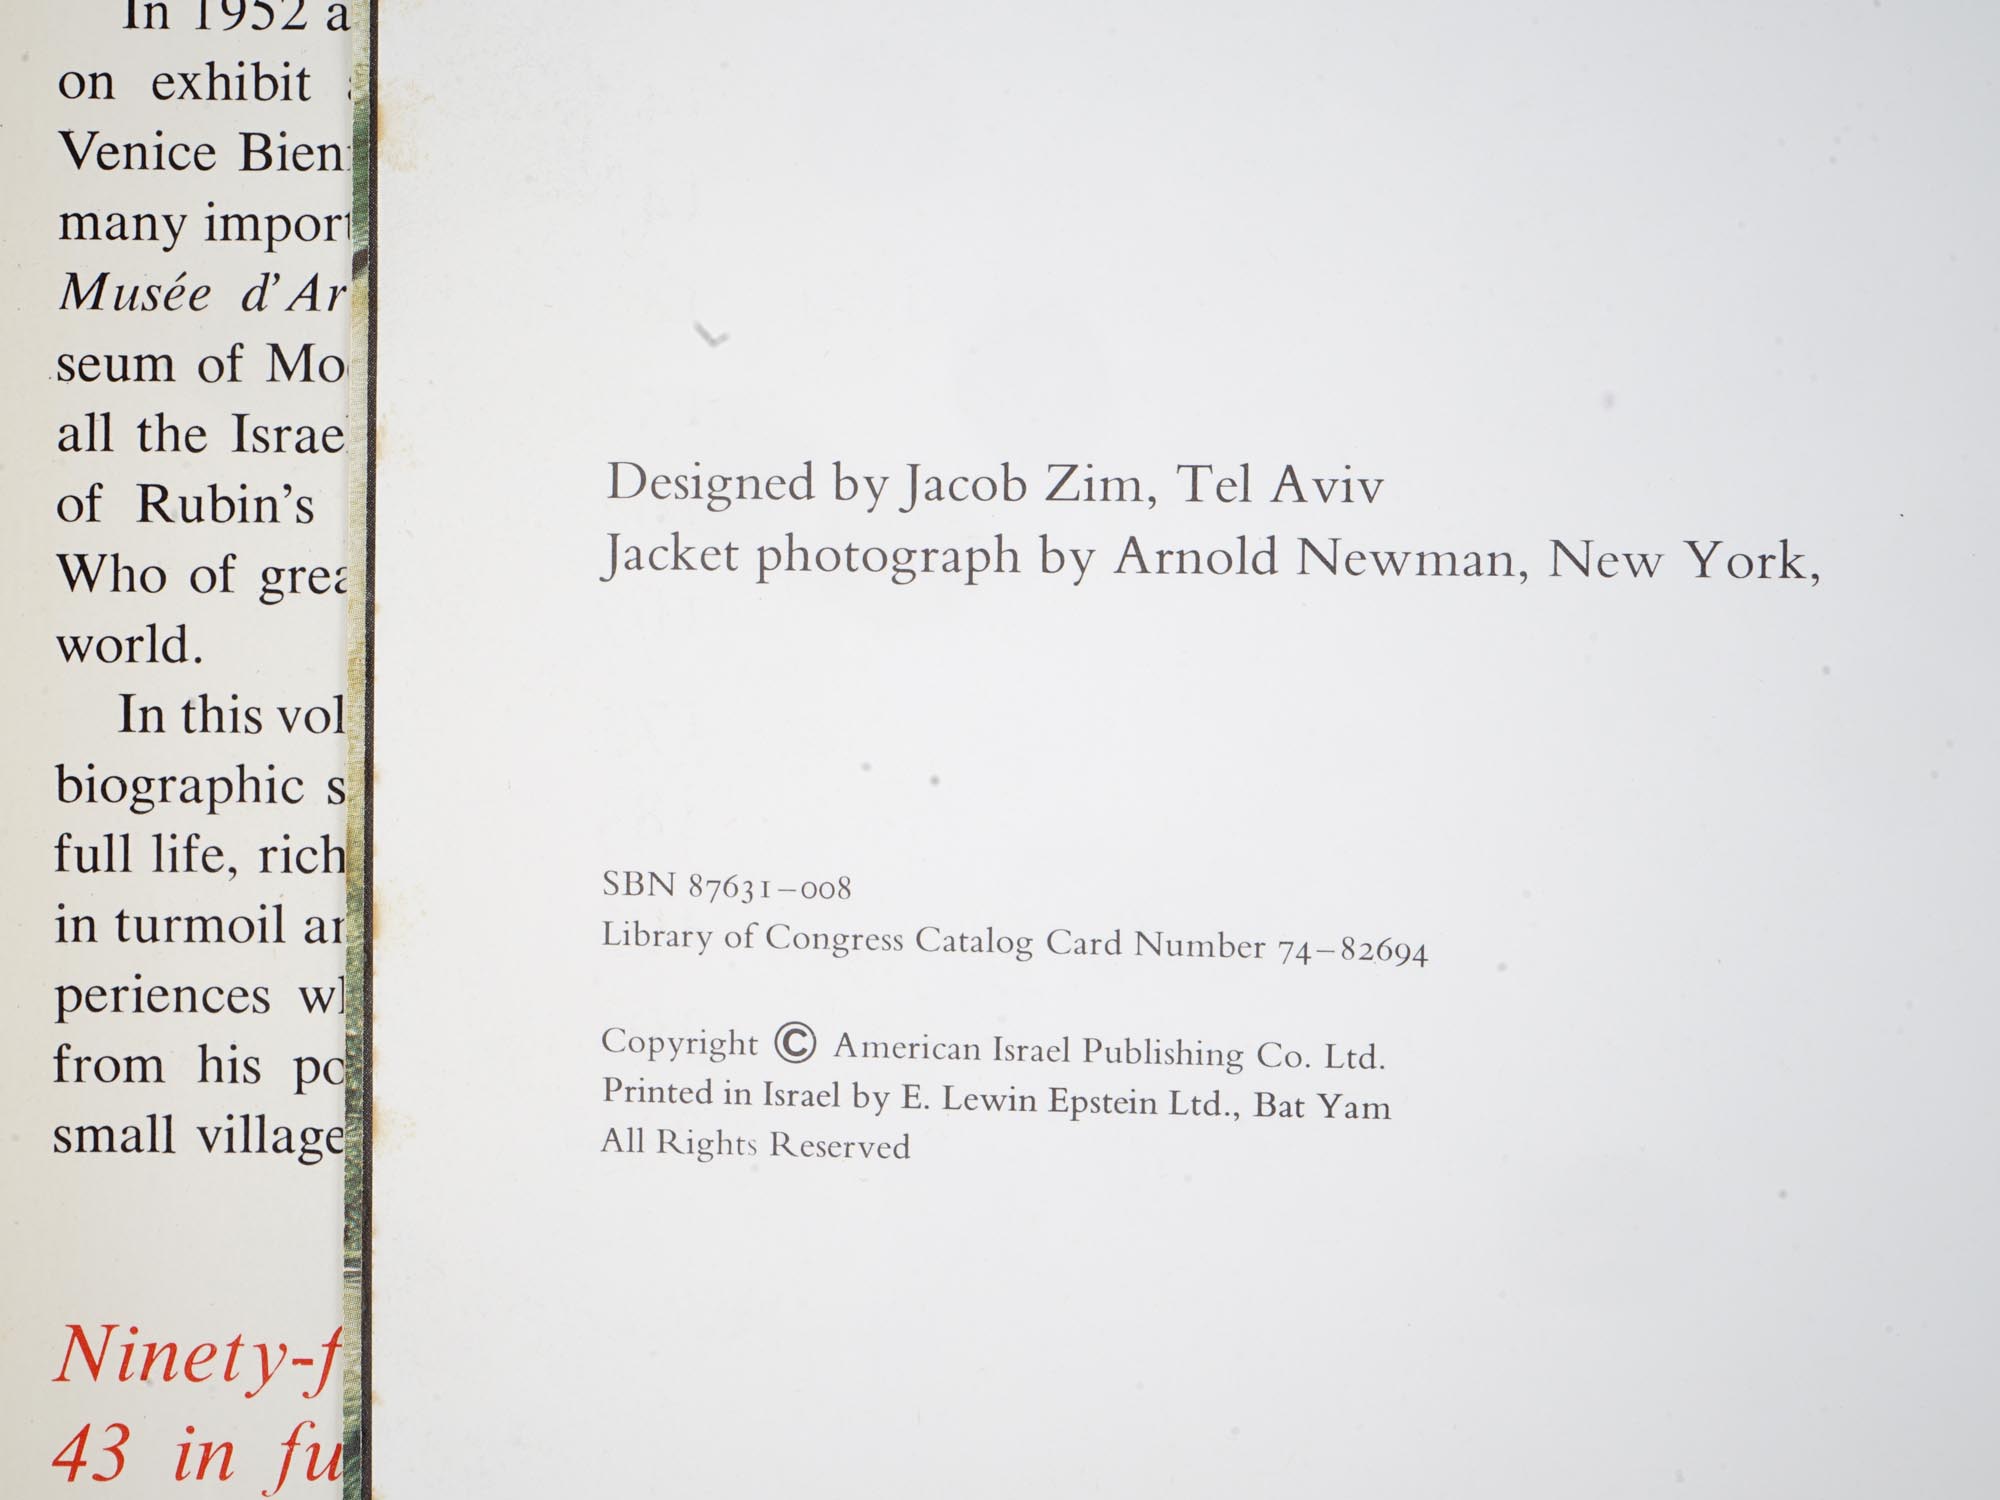 In 1952 a
on exhibit
Venice Bien
many import
Musée d'Ar
seum of Mo
all the Israe
of Rubin's
Who of grea
world.
In this vol
biographic s
full life, rich
in turmoil ar
periences wh
from his po
small village
Ninety-f
43 in fu
Designed by Jacob Zim, Tel Aviv
Jacket photograph by Arnold Newman, New York,
SBN 87631–008
Library of Congress Catalog Card Number 74–82694
Copyright © American Israel Publishing Co. Ltd.
Printed in Israel by E. Lewin Epstein Ltd., Bat Yam
All Rights Reserved